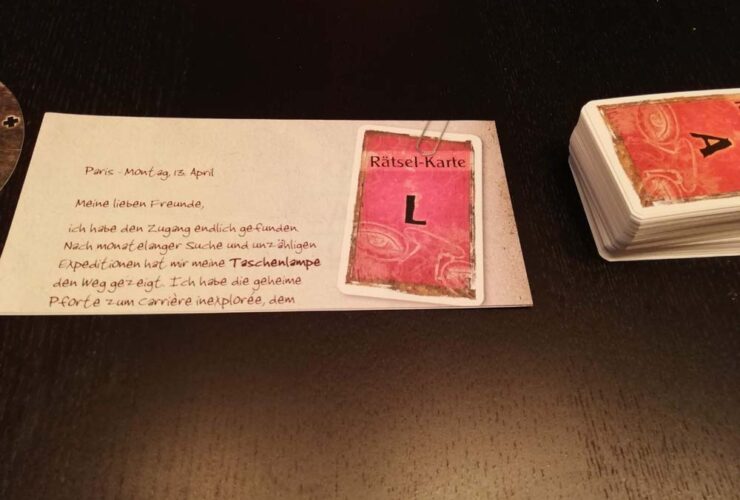 Paris - Montag, 13. April
Meine lieben Freunde,
ich habe den Zugang endlich gefunden
Nach monatelanger Suche und unzähligen
Expeditionen hat mir meine Taschenlampe
den Weg gezeigt. Ich habe die geheime
Pforte zum Carrière inexplorée, dem
Rätsel-Karte
L
A